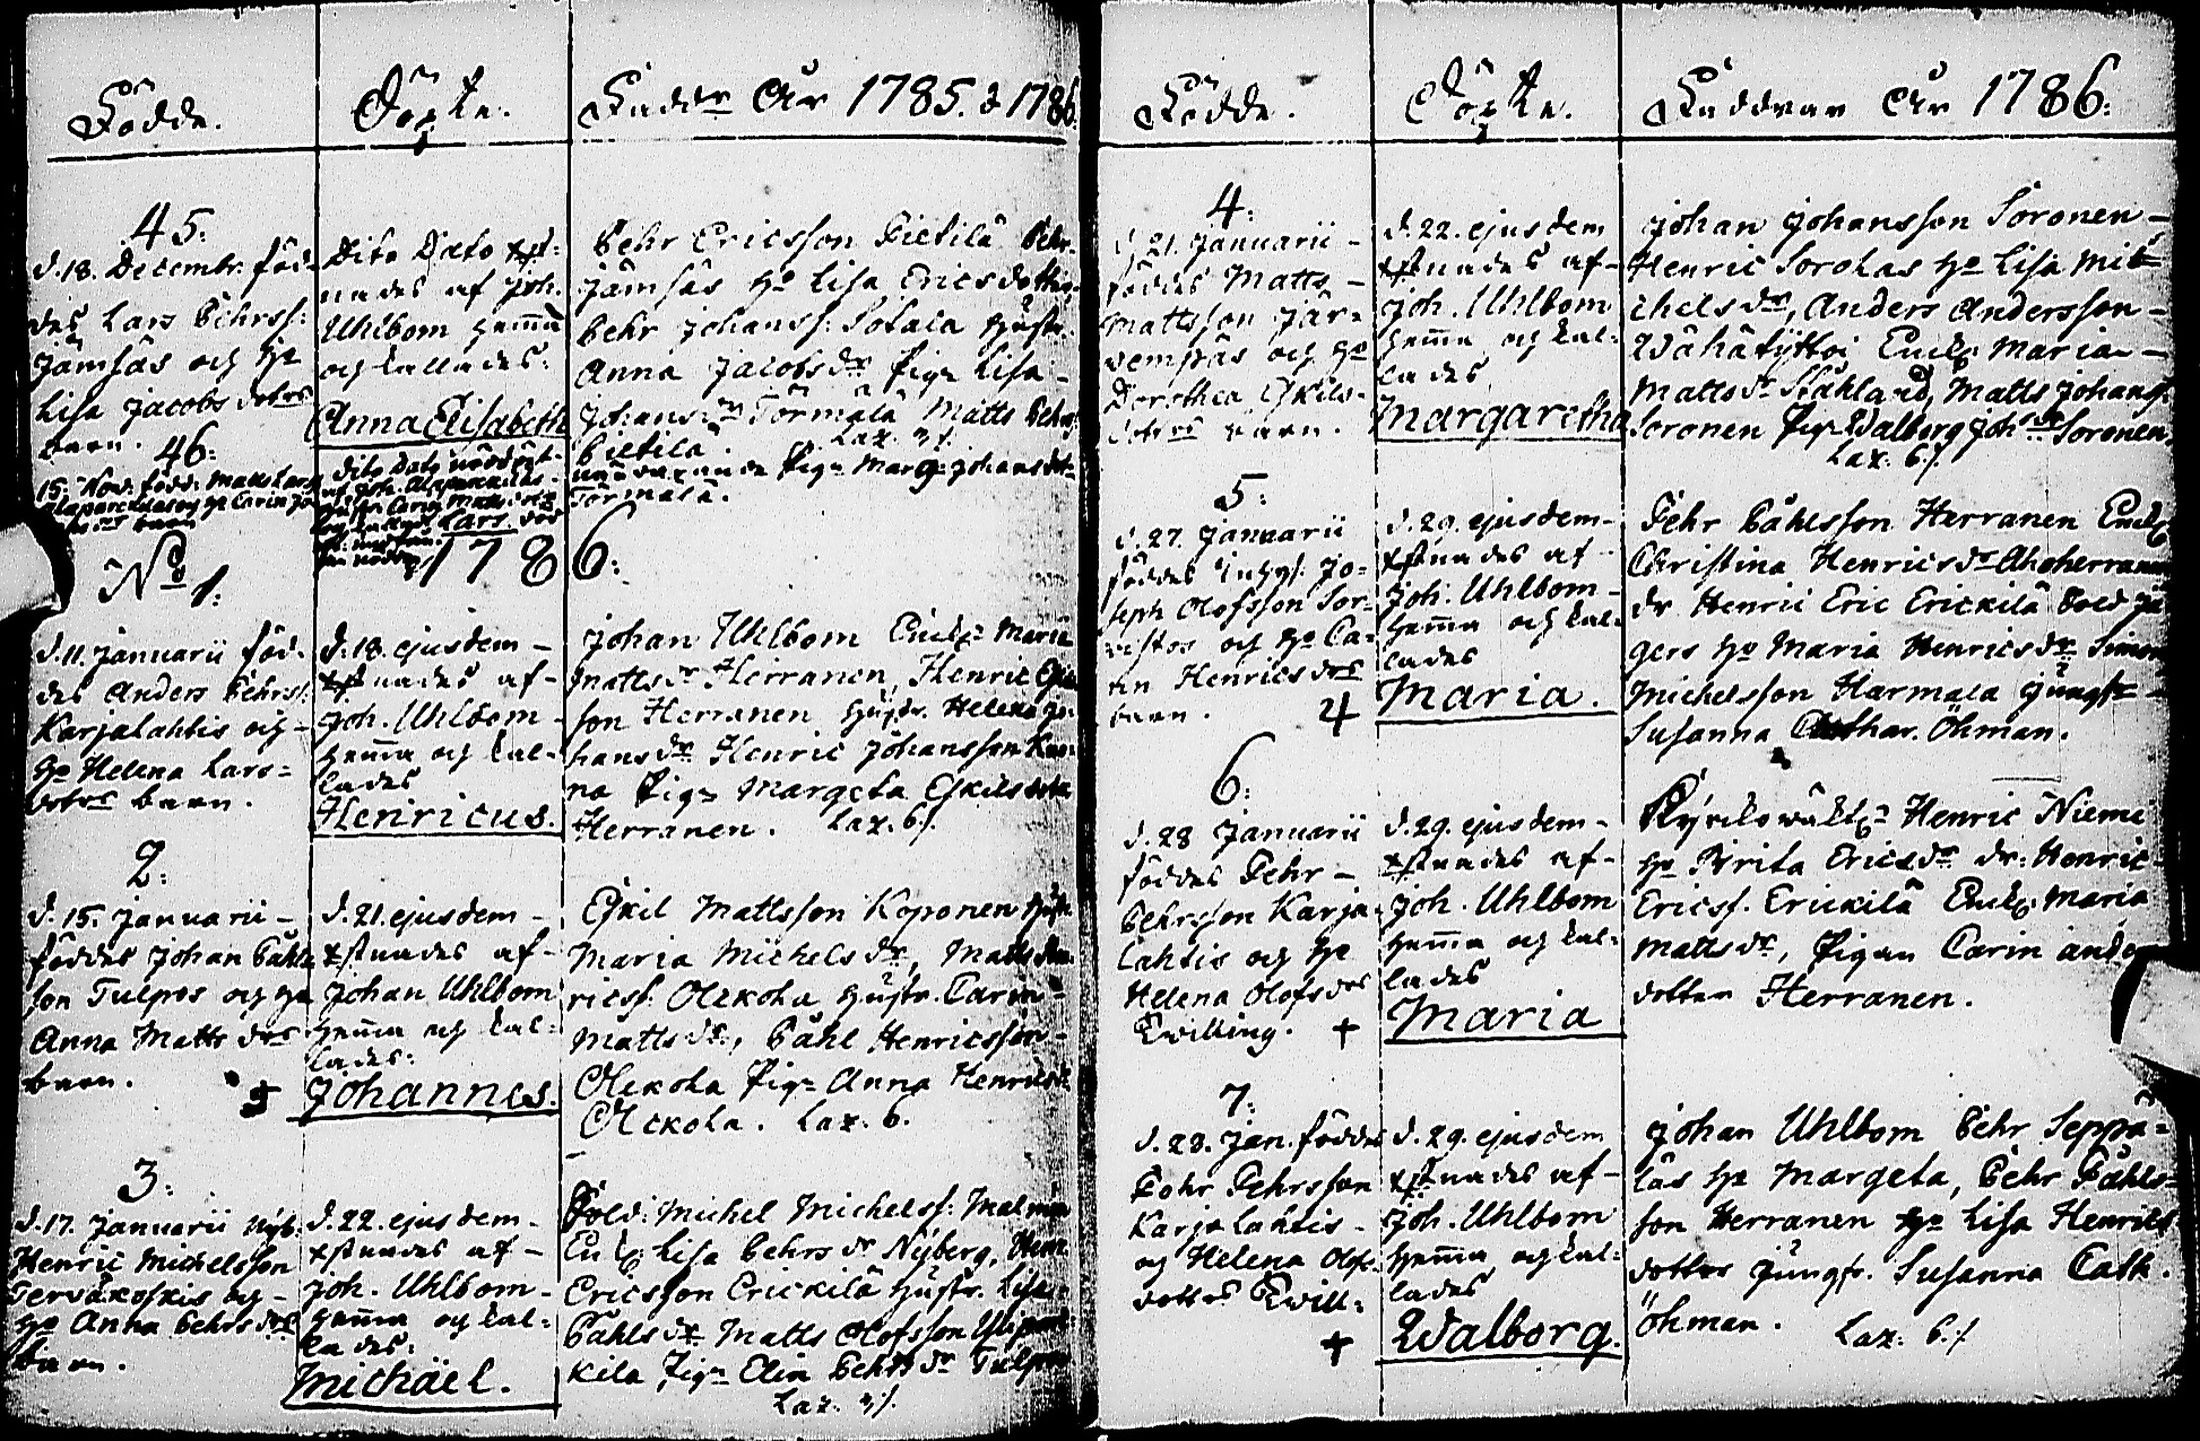 Födde.
Döpte.
Faddr År 1785. & 1786.
45:
d. 18. Decembr. föd-
des Lars Pehrss:
Jämsäs och h:
Lisa Jacobs dotrs
barn.
Dito Dato xst:
nades af Joh.
Uhlbom hema
och kallades:
Anna Elisabeth
Pehr Ericsson Pietilä Pehr
Jämsäs ho Lisa Ericsdotter
Pehr Johanss: Sotala hustr.
Anna Jacobsdr Pign Lisa
Johansdr Törmälä Matts Pehrs
Pietilä.
Lax.
Pign Marg: Johansdot
Törmälä.
46:
15. Nov. född: Matts Lars
og ho Carin
barn
Dito Dato nöddöpt
Lars
1786:
No 1:
d. 11. Januarii föd-
des Anders Pehrs:
Karjalahtis och
ho Helena Lars=
dotrs barn.
d. 18. ejusdem
xstnades af
Joh. Uhlbom
hema och kal-
lades
Henricus.
Johan Uhlbom Enck: Maria
Mattsdr Herranen, Henric
son Herranen hustr. Helena Jo-
hansdr Henric Johansson
na Pign Margeta Eskilsdotr
Herranen. Lax. 6/.
2:
d. 15. Januarii
föddes Johan Påhls
son Tulpos och ho
Anna Matts drs
barn.
d. 21. ejusdem
xstnades af
Johan Uhlbom
hema och kal-
lades:
Johannes.
Eskil Mattsson Koponen hust
Maria Michelsdr, Matts Hen-
ricss: Olckola hustr. Carin
Mattsdr, Påhl Henricsson
Olckola Pign Anna Henricsdr
Olckola. Lax. 6.
3:
d. 17. Januarii Nyb:
Henric Michelsson
Tervakoskis och
ho Anna Pehrs drs
barn.
d. 22. ejusdem
xstnades af
Joh. Uhlbom
hema och kal-
lades:
Michäel.
Sold: Michel Michelss: Malmin
Enck: Lisa Pehrsdr Nyberg, Henr
Ericsson Erickilä hustr. Lisa
Påhlsdr Matts Olofsson
kila Pign Elin Pehrsdr Tulpo
Lax.
Födde.
Döpte.
Faddrar År 1786:
4:
d. 21. Januarii
föddes Matts
Mattsson Jär-
vempäs och ho
Dorothea Eskils-
dotrs barn.
d. 22. ejusdem
xstnades af
Joh. Uhlbom
hema och kal-
lades
Margaretha
Johan Johansson Soronen
Henric Sorokas ho Lisa Mit
chelsdr, Anders Andersson
Wähätyttoi Enck: Maria
Mattsdr Ståhland, Matts Johans
Soronen Pign Walborg Johdr Soronen
Lax: 6/.
5:
d. 27. Januarii
föddes Inhys: Jo-
seph Olofsson Sor-
vistos och ho Ca-
rin Henricsdrs
barn.
d. 29. ejusdem
xstnades af
Joh. Uhlbom
hema och kal-
lades
Maria.
Pehr Påhlsson Herranen Enck:
Christina Henricsdr Ahoherranen
dr Henric Eric Erickilä Sold Jä
gers ho Maria Henricsdr Simon
Michelsson Harmala Jungfr
Susanna Cathar. Öhman.
6:
d. 28 Januarii
föddes Pehr
Pehrsson Karja-
lahtis och ho
Helena Olofsdrs
Twilling. +
d. 29. ejusdem
xstnades af
Joh. Uhlbom
hema och kal-
lades
Maria
Kyrckowäkt: Henric Niemi
ho Brita Ericsdr dr: Henric
Ericss. Erickilä Enck: Maria
Mattsdr, Pigan Carin anders
dotter Herranen.
7:
d. 28. Jan. föddes
Pehr Pehrsson
Karjalahtis
og Helena Olofs-
dotters Twill:
+
d. 29. ejusdem
xstnades af
Joh. Uhlbom
hema och kal-
lades
Walborg.
Johan Uhlbom Pehr Seppä=
läs ho Margeta, Pehr Påhls=
son Herranen ho Lisa Henrics
dotter Jungfr. Susanna Cath.
Öhman. Lax: 6./